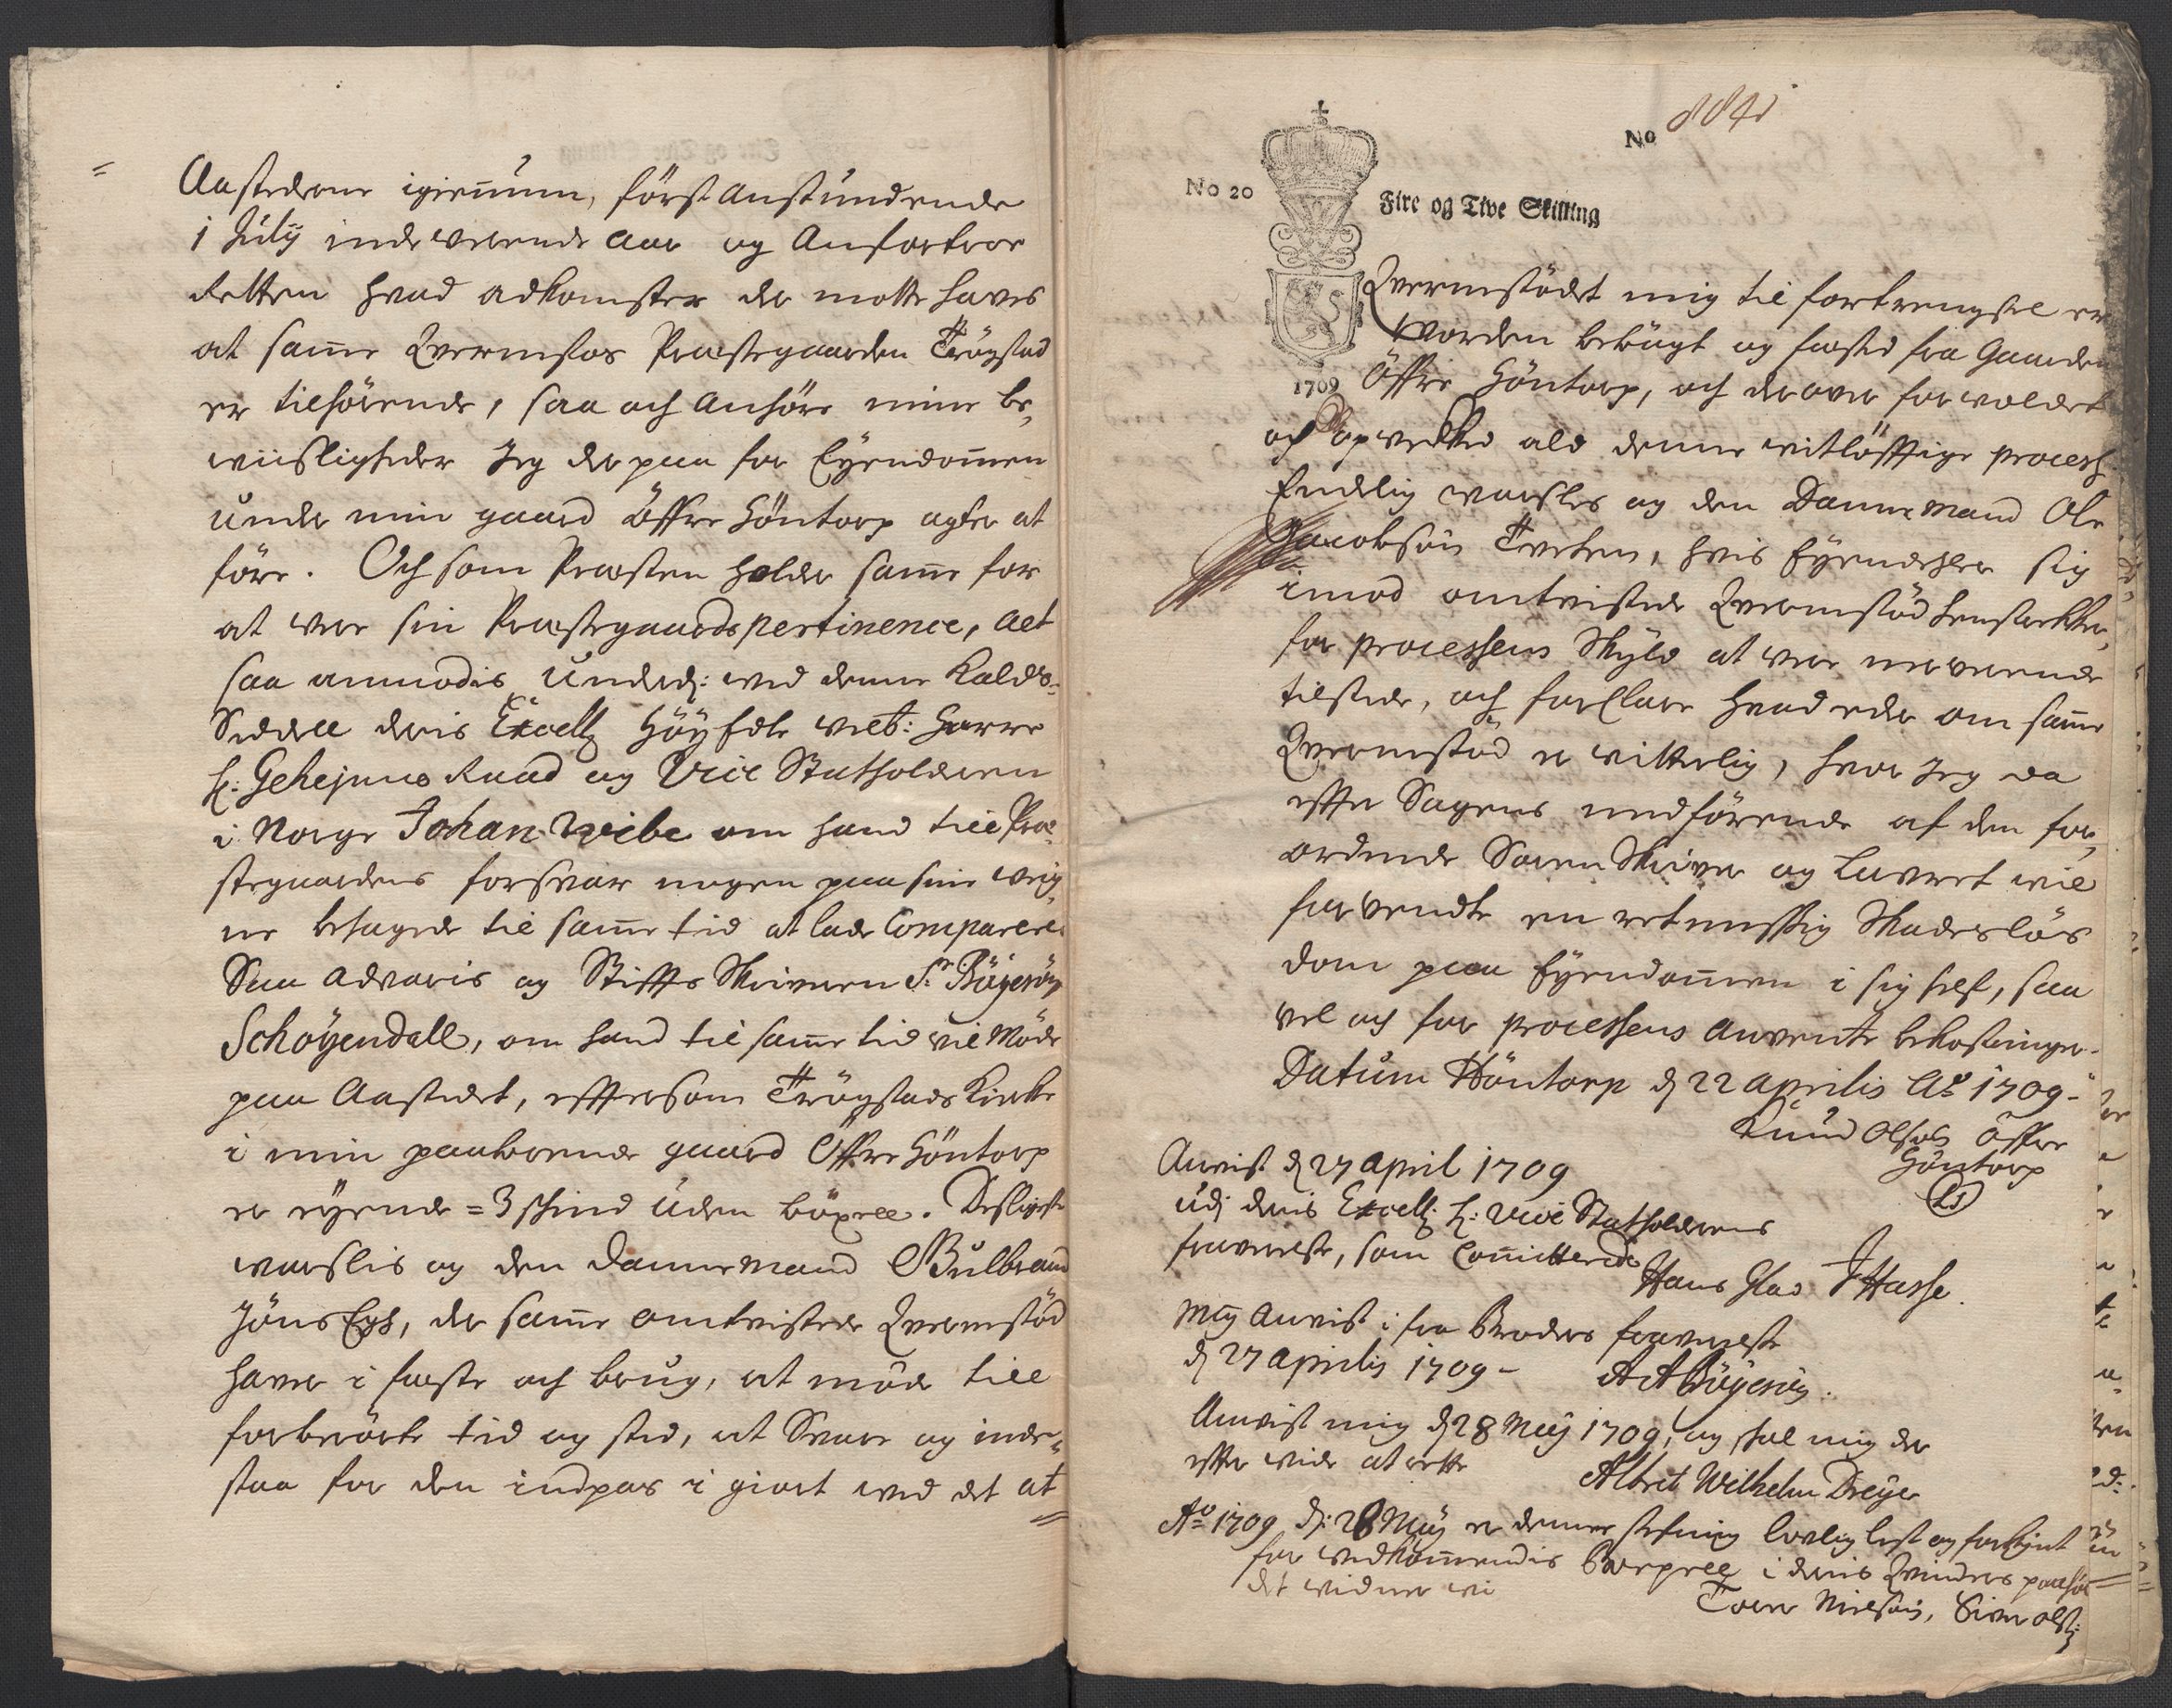 Aastederne igiennum, först Anstundende
1 Julij indeverende Aar og Anfortroe
Retten hvad adkomster der motte haves
at samme Quernfos Præstegaarden Trögstad
er tilhörende, saa och Anhöre mine be„
viisligheder Jeg der paa for Eyendommen
under min gaard Öffre Höntorp agter at
före. Och som Præsten holder samme for
at vere sin Præstegaards pertinence, alt
saa anmodis Underd: med denne Kalds-
Seddell deris Excell: Höy Edle velb: Herre
H: Gehejme Raad og Vice Statholderen
i Norge Johan Wibe om hand till Præ-
stegaardens forsvar nogen paa sine veig„
ne behagede til samme tid at lade Comparere.
Saa advaris og Stiffts Skriveren Sr. Böyesön
Schöyendall, om hand til samme tid vil Möde
paa Aastedet, efftersom Trögstads Kirke
i min paaboende gaard Öffre Höntorp
er eyende = 3 schind uden böxell. Desligeste
varslis og den Dannemand Gulbrand
Jöns Egh, der samme omtvistede Quernstöd
haver i feste och brug, at möde till
forberörte tid og sted, at Svare og inde-
staa for den indpas i giort med det at
No 884
No 20
Fire og Tive Skilling
1709
Quernstödet mig til fortrengsel er
worden bebögt og fested fra Gaarden
Öffre Höntorp, och der over forvoldet
och opvecked ald denne vitlöfftige process
Endelig varsles og den Danne Mand Ole
Jacobsön Tveten, hvis Eyendehler sig
imod omtvistede Quernstöd henstrekker,
for processens Skyld at vere nerverende
tilstede, och forclare hvad eder om samme
Quernstöd er vitterlig, hvor Jeg da
effter Sagens medförende af den for„
ordnede Sorenskriver og Lavret vil
forvendte en retmessig Skadeslös
dom paa Eyendommen i sig self, saa
vel och for processens anvente bekostninger.
Datum Höntorp d. 22 aprilis Ao 1709-
Knud Olsön Öffre
Höntorp
LS
Anvist d. 27 April 1709
udj deris Excell: H: Vice Statholderens
fraverelse, som Committerede
Hans Glad JHasse.
Mig Anvist i fra Broders fraverelse
d. 27 Aprilis 1709 - A A Böyesön.
Anvist mig d. 28 Maij 1709, og skal mig der
effter vide at rette Albret Wilhelm Dreyer
Ao 1709 d: 28 Maij er denne stefning lovlig lest og forkyndt
for vedkommendis i deris Quinders paahör
det vidner vi
Tore Nielsön, Siver Olss: